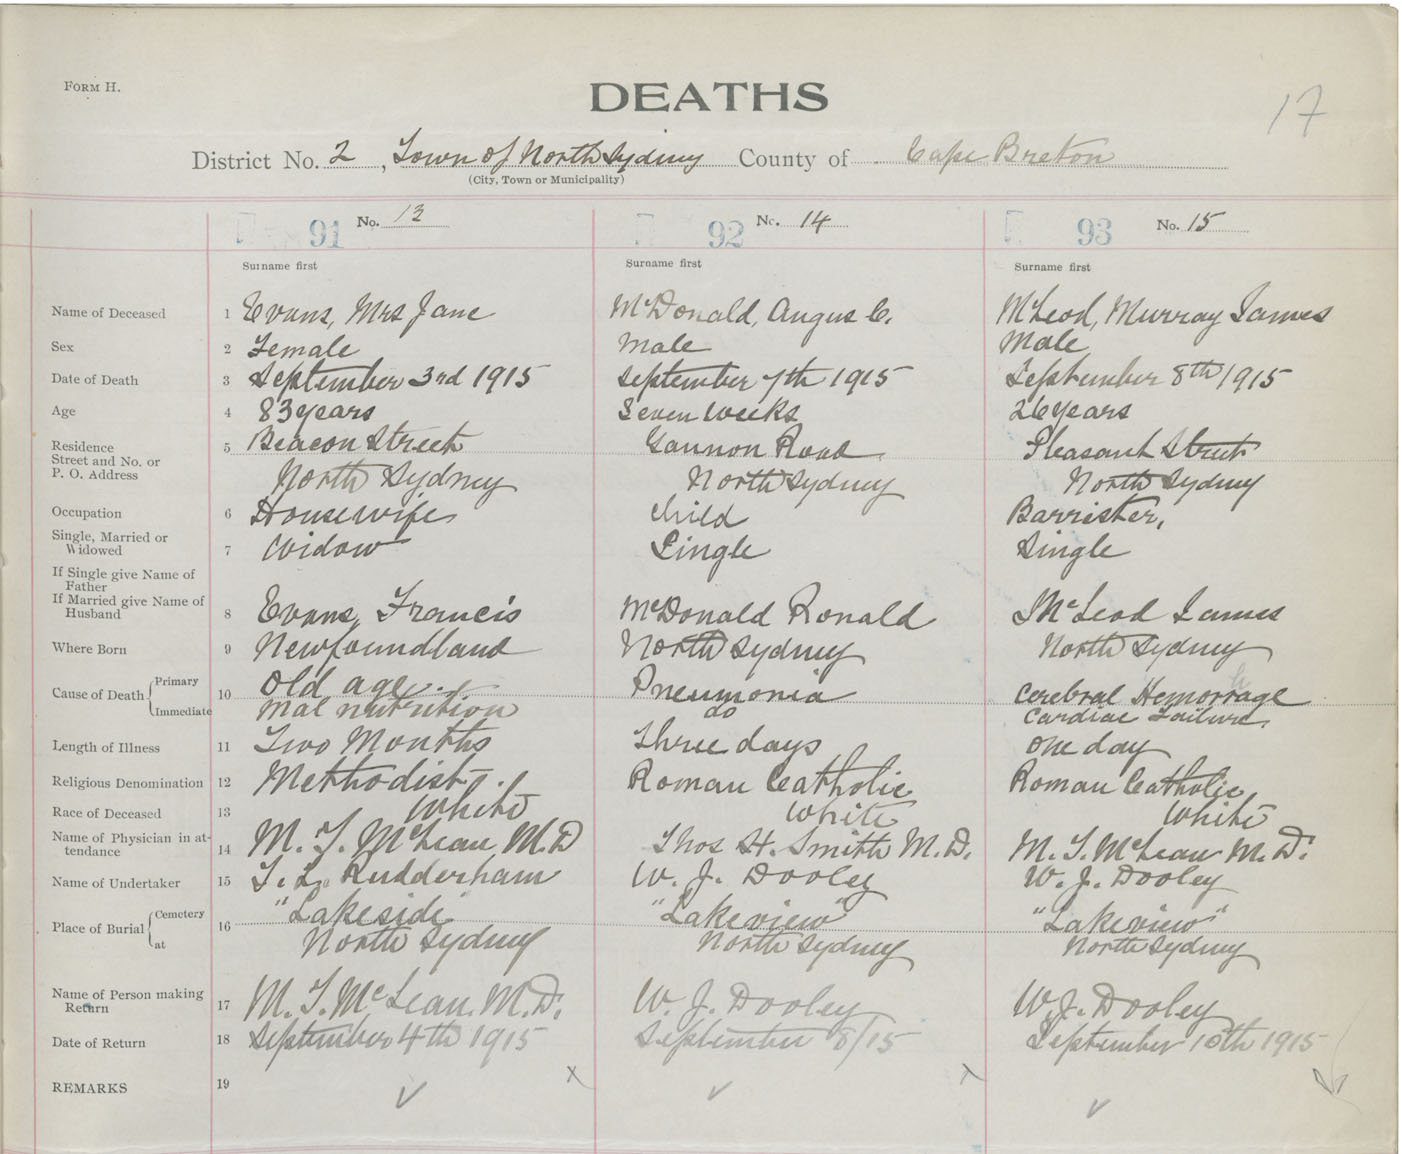 FORM H.
DEATHS
17
District No. 2, Town of North Sydney County of Cape Breton
(City, Town or Municipality)
91 No. 13 92 No. 14 93 No. 15
Surname first Surname first Surname first
Name of Deceased 1 Evans, Mrs Jane McDonald, Angus C. McLeod, Murray James
Sex 2 Female Male Male
Date of Death 3 September 3rd 1915 September 7th 1915 September 8th 1915
Age 4 83 years Seven Weeks 26 years
Residence 5 Beacon Street Gannon Road Pleasant Street
Street and No. or
P. O. Address North Sydney North Sydney North Sydney
Occupation 6 Housewife Child Barrister,
Single, Married or
Widowed 7 Widow Single Single
If Single give Name of
Father
If Married give Name of
Husband 8 Evans, Francis McDonald Ronald McLeod James
Where Born 9 Newfoundland North Sydney North Sydney
Cause of Death Primary 10 Old age. Pneumonia Cerebral Hemorrage
Immediate Mal nutrition do Cardiac Failure.
Length of Illness 11 Two Months Three days One day
Religious Denomination 12 Methodist Roman Catholic Roman Catholic
Race of Deceased 13 White White White
Name of Physician in at-
tendance 14 M. T. McLean M.D Thos H. Smith M.D. M. T. McLean M.D.
Name of Undertaker 15 T. L. Rudderham W. J. Dooley W. J. Dooley
Place of Burial Cemetery 16 "Lakeside "Lakeview" "Lakeview"
at North Sydney North Sydney North Sydney
Name of Person making
Return 17 M. T. McLean. M.D. W. J. Dooley W. J. Dooley
Date of Return 18 September 4th 1915 September 8/15 September 10th 1915
REMARKS 19